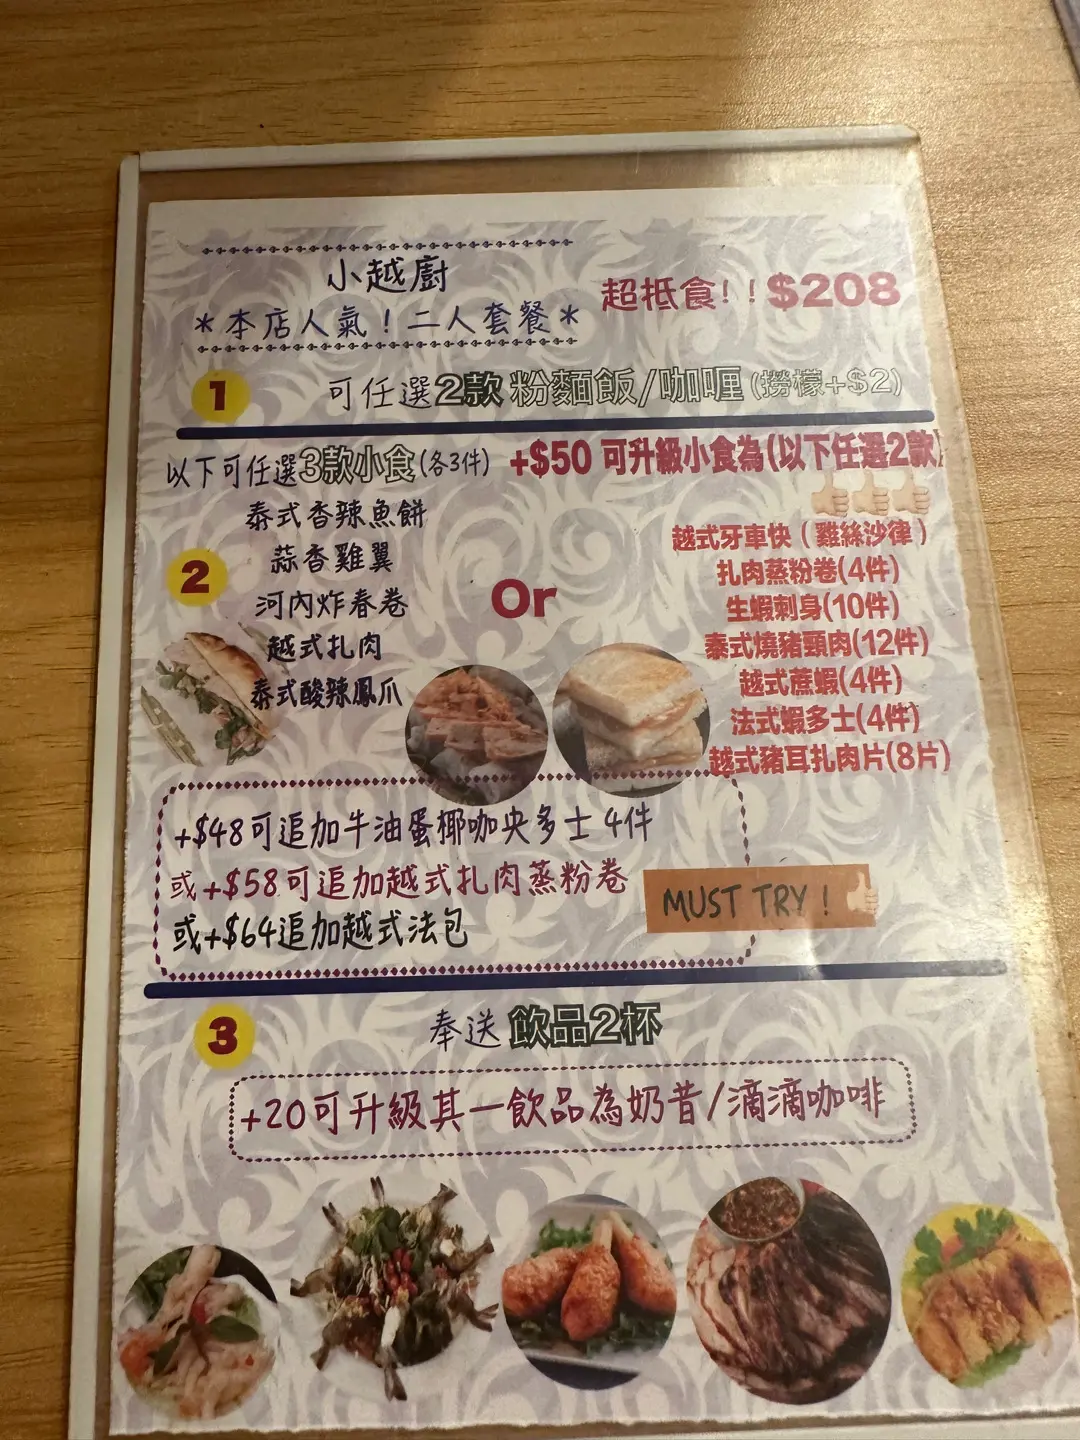 小越廚
*本店人氣！二人套餐*
超抵食!!$208
1
可任選2款 粉麵飯/咖喱 (撈檬+$2)
以下可任選3款小食(各3件)
泰式香辣魚餅
蒜香雞翼
2
河內炸春卷
越式扎肉
泰式酸辣鳳爪
Or
+$50 可升級小食為(以下任選2款)
越式牙車快（雞絲沙律）
扎肉蒸粉卷(4件)
生蝦刺身(10件)
泰式燒豬頸肉(12件)
越式蔗蝦(4件)
法式蝦多士(4件)
越式豬耳扎肉片(8片)
+$48可追加牛油蛋椰咖央多士 4件
或+$58可追加越式扎肉蒸粉卷
或+$64追加越式法包
MUST TRY !
3
奉送 飲品2杯
+20可升級其一飲品為奶昔/滴滴咖啡